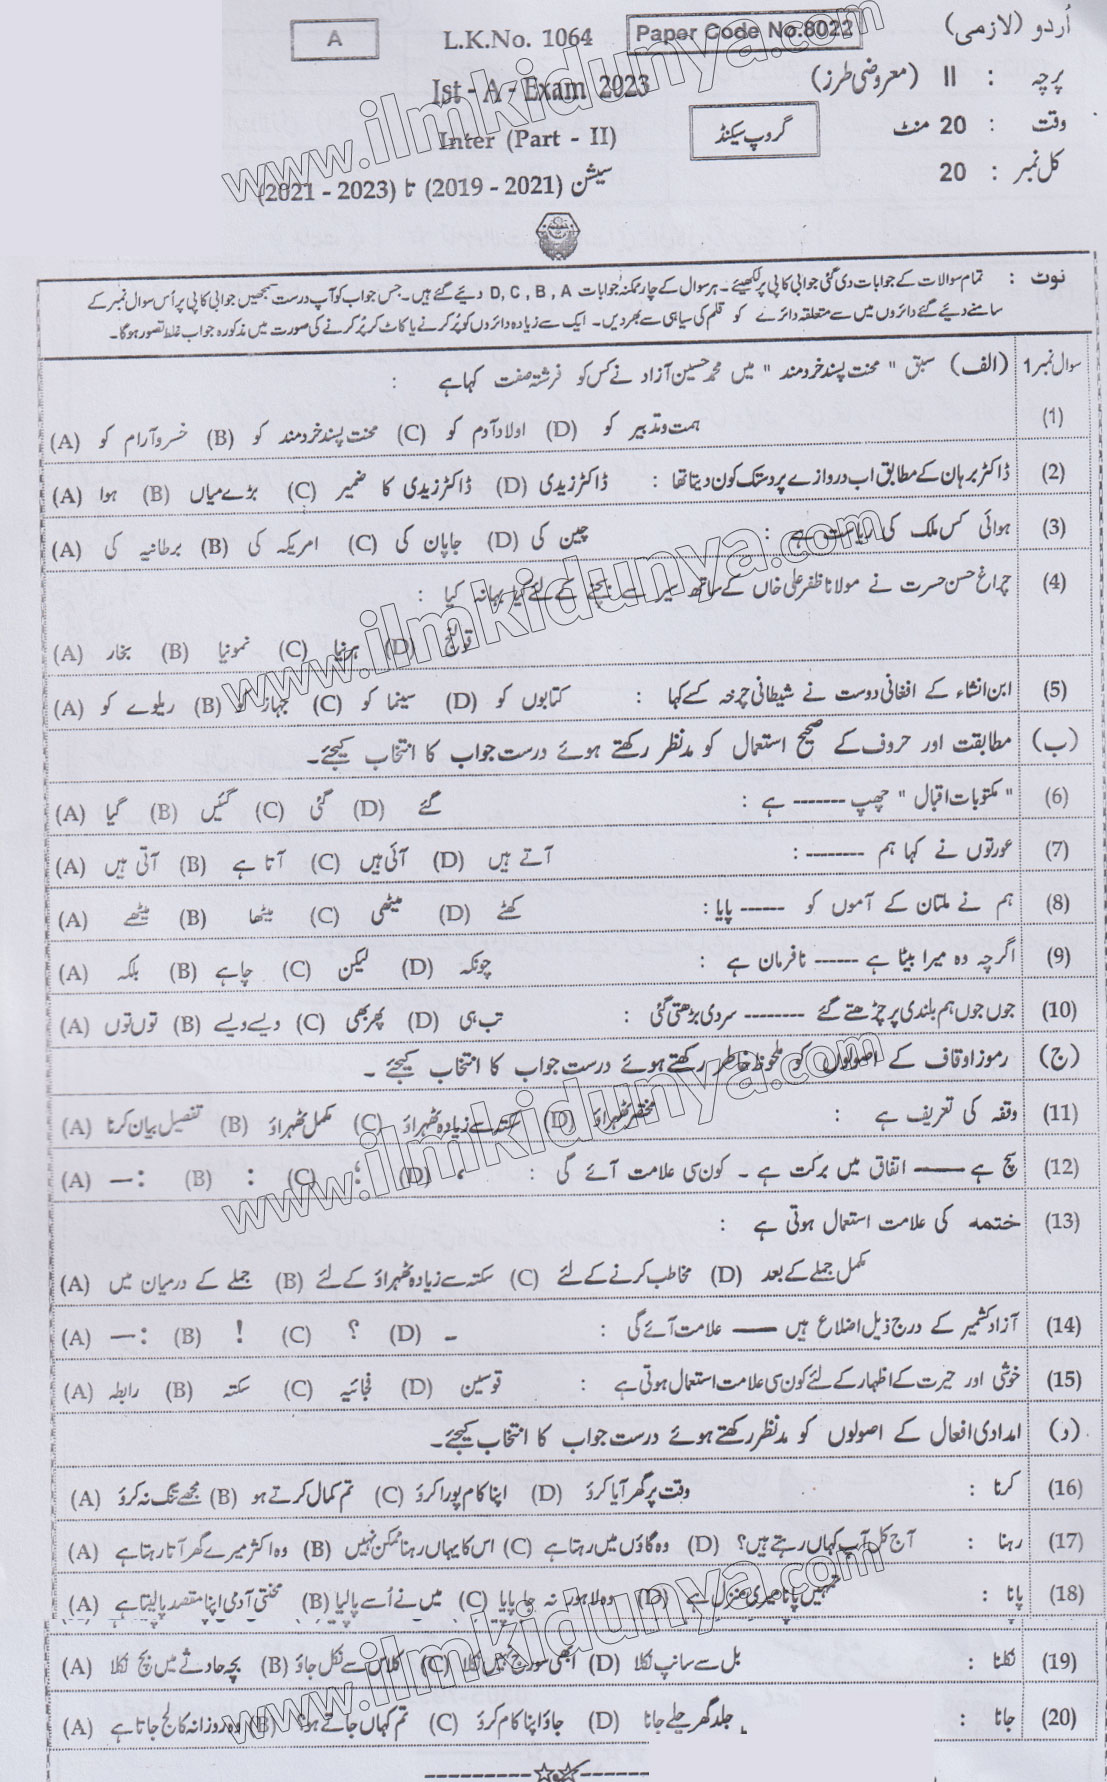 اُردو (لازمی) Paper Code No.8022 L.K.No. 1064 A
پرچہ : II (معروضی طرز) Ist - A - Exam 2023
وقت : 20 منٹ گروپ سیکنڈ Inter (Part - II)
کل نمبر : 20 سیشن (2019 - 2021) تا (2021 - 2023)
نوٹ : تمام سوالات کے جوابات دی گئی جوابی کاپی پر لکھیئے۔ ہر سوال کے چار ممکنہ جوابات D, C, B, A دیئے گئے ہیں۔ جس جواب کو آپ درست سمجھیں جوابی کاپی پر اُس سوال نمبر کے
سامنے دیئے گئے دائروں میں سے متعلقہ دائرے کو قلم کی سیاہی سے بھر دیں۔ ایک سے زیادہ دائروں کو پُر کرنے یا کاٹ کر پُر کرنے کی صورت میں مذکورہ جواب غلط تصور ہو گا۔
سوال نمبر 1 (الف) سبق " محنت پسند خردمند " میں محمد حسین آزاد نے کس کو فرشتہ صفت کہا ہے :
(1) (A) خسرو آرام کو (B) محنت پسند خردمند کو (C) اولاد آدم کو (D) ہمت و تدبیر کو
(2) ڈاکٹر برہان کے مطابق اب دروازے پر دستک کون دیتا تھا : (A) ہوا (B) بڑے میاں (C) ڈاکٹر زیدی کا ضمیر (D) ڈاکٹر زیدی
(3) ہوائی کس ملک کی ریاست ہے : (A) برطانیہ کی (B) امریکہ کی (C) جاپان کی (D) چین کی
(4) چراغ حسن حسرت نے مولانا ظفر علی خاں کے ساتھ سیر سے بچنے کے لئے کیا بہانہ کیا :
(A) بخار (B) نمونیا (C) ہرنیا (D) قولنج
(5) ابن انشاء کے افغانی دوست نے شیطانی چرخہ کسے کہا : (A) ریلوے کو (B) جہاز کو (C) سینما کو (D) کتابوں کو
(ب) مطابقت اور حروف کے صحیح استعمال کو مدنظر رکھتے ہوئے درست جواب کا انتخاب کیجئے۔
(6) " مکتوبات اقبال " چھپ ------- ہے : (A) گیا (B) گئیں (C) گئی (D) گئے
(7) عورتوں نے کہا ہم -------- : (A) آتی ہیں (B) آتا ہے (C) آئی ہیں (D) آتے ہیں
(8) ہم نے ملتان کے آموں کو ------ پایا : (A) میٹھے (B) میٹھا (C) میٹھی (D) کھٹے
(9) اگرچہ وہ میرا بیٹا ہے ------ نافرمان ہے : (A) بلکہ (B) چاہے (C) لیکن (D) چونکہ
(10) جوں جوں ہم بلندی پر چڑھتے گئے -------- سردی بڑھتی گئی : (A) توں توں (B) ویسے ویسے (C) پھر بھی (D) تب ہی
(ج) رموز اوقاف کے اصولوں کو ملحوظ خاطر رکھتے ہوئے درست جواب کا انتخاب کیجئے ۔
(11) وقفہ کی تعریف ہے : (A) تفصیل بیان کرنا (B) مکمل ٹھہراؤ (C) سکتہ سے زیادہ ٹھہراؤ (D) مختصر ٹھہراؤ
(12) سچ ہے —— اتفاق میں برکت ہے ۔ کون سی علامت آئے گی : (A) :— (B) : (C) ؛ (D) ،
(13) ختمہ کی علامت استعمال ہوتی ہے :
(A) جملے کے درمیان میں (B) سکتہ سے زیادہ ٹھہراؤ کے لئے (C) مخاطب کرنے کے لئے (D) مکمل جملے کے بعد
(14) آزاد کشمیر کے درج ذیل اضلاع ہیں —— علامت آئے گی : (A) :— (B) ! (C) ؟ (D) ۔
(15) خوشی اور حیرت کے اظہار کے لئے کون سی علامت استعمال ہوتی ہے : (A) رابطہ (B) سکتہ (C) فجائیہ (D) قوسین
(د) امدادی افعال کے اصولوں کو مدنظر رکھتے ہوئے درست جواب کا انتخاب کیجئے۔
(16) کرنا : (A) مجھے تنگ نہ کرؤ (B) تم کمال کرتے ہو (C) اپنا کام پورا کرؤ (D) وقت پر گھر آیا کرؤ
(17) رہنا : (A) وہ اکثر میرے گھر آتا رہتا ہے (B) اس کا یہاں رہنا ممکن نہیں (C) وہ گاؤں میں رہتا ہے (D) آج کل آپ کہاں رہتے ہیں؟
(18) پانا : (A) محنتی آدمی اپنا مقصد پا لیتا ہے (B) میں نے اُسے پا لیا (C) وہ لاہور نہ جا پایا (D) تمہیں پانا میری منزل ہے
(19) نکلنا : (A) بچہ حادثے میں بچ نکلا (B) کلاس سے نکل جاؤ (C) ابھی سورج نہیں نکلا (D) بل سے سانپ نکلا
(20) جانا : (A) وہ روزانہ کالج جاتا ہے (B) تم کہاں جاتے ہو؟ (C) جاؤ اپنا کام کرؤ (D) جلد گھر چلے جانا
www.ilmkidunya.com
www.ilmkidunya.com
www.ilmkidunya.com
www.ilmkidunya.com